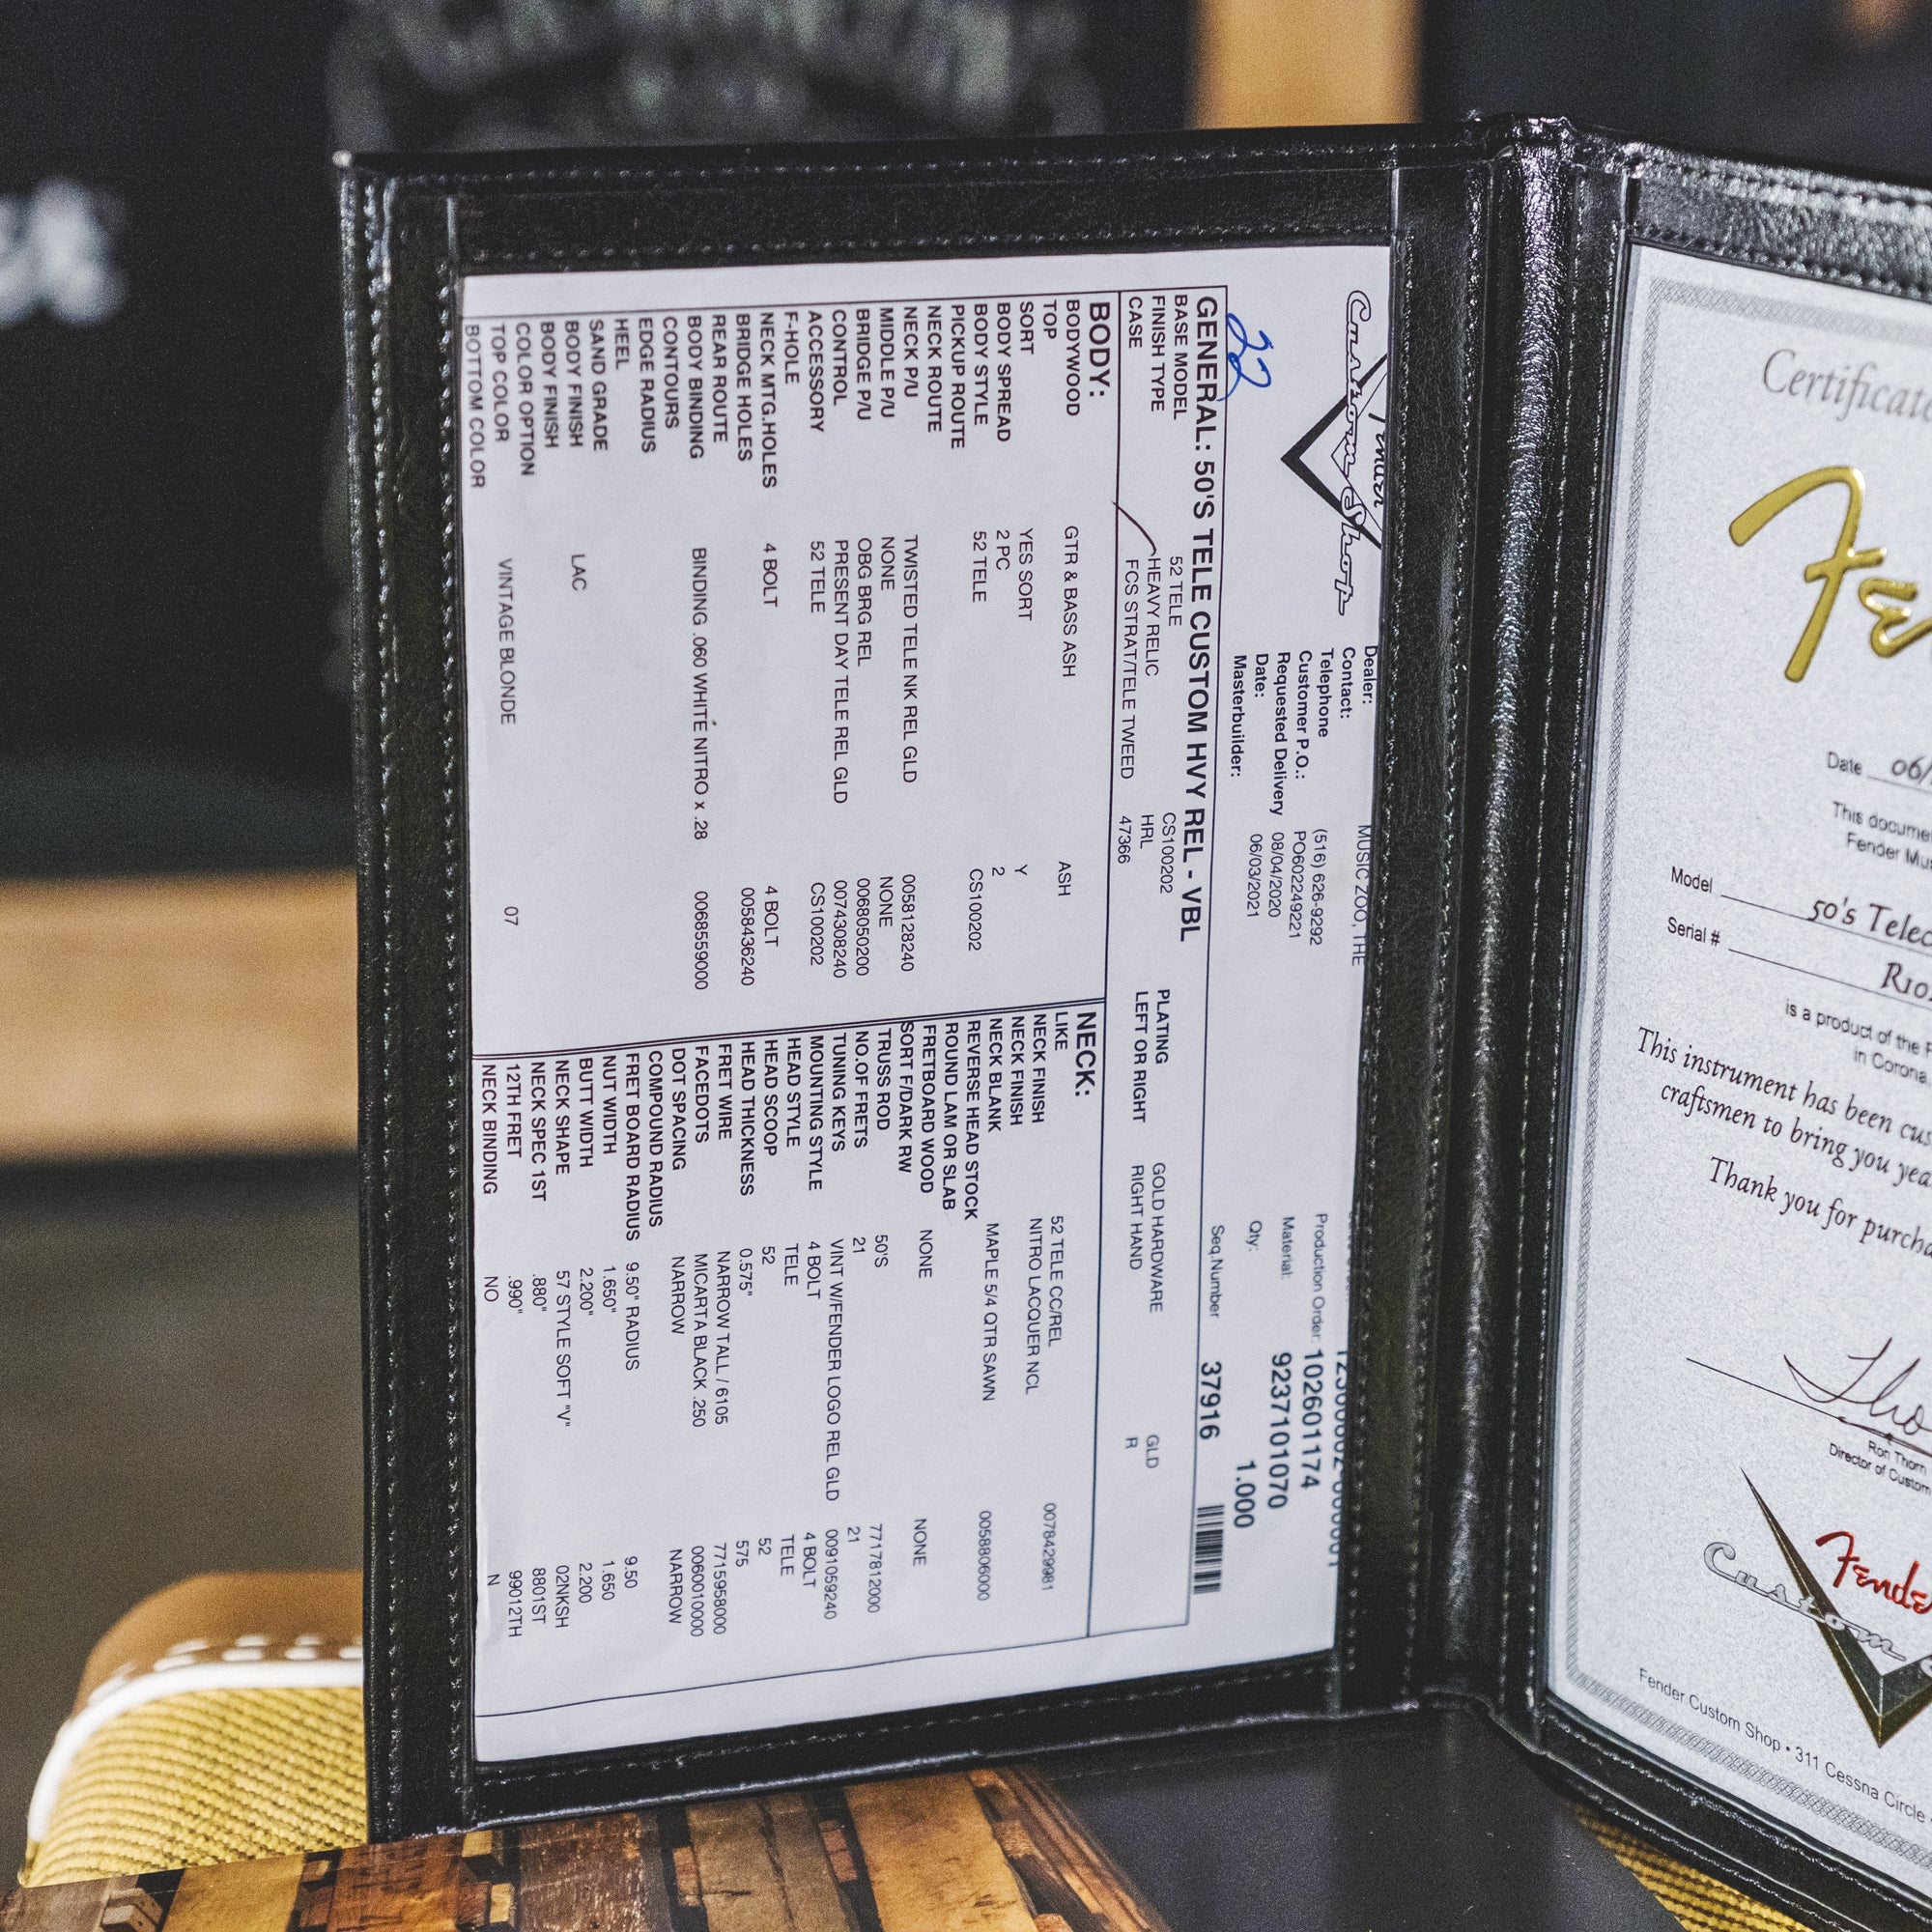 Fender
Custom Shop
22
Dealer: MUSIC ZOO, THE
Contact:
Telephone (516) 626-9292
Customer P.O.: PO6022249221
Requested Delivery 08/04/2020
Date: 06/03/2021
Masterbuilder:
Production Order: 102601174
Material: 9237101070
Qty: 1.000
Seq.Number 37916
GENERAL: 50'S TELE CUSTOM HVY REL - VBL
BASE MODEL 52 TELE CS100202 PLATING GOLD HARDWARE GLD
FINISH TYPE HEAVY RELIC HRL LEFT OR RIGHT RIGHT HAND R
CASE FCS STRAT/TELE TWEED 47366
BODY:
BODYWOOD GTR & BASS ASH ASH
TOP
SORT YES SORT Y
BODY SPREAD 2 PC 2
BODY STYLE 52 TELE CS100202
PICKUP ROUTE
NECK ROUTE
NECK P/U TWISTED TELE NK REL GLD 0058128240
MIDDLE P/U NONE NONE
BRIDGE P/U OBG BRG REL 0068050200
CONTROL PRESENT DAY TELE REL GLD 0074308240
ACCESSORY 52 TELE CS100202
F-HOLE
NECK MTG.HOLES 4 BOLT 4 BOLT
BRIDGE HOLES 0058436240
REAR ROUTE
BODY BINDING BINDING .060 WHITE NITRO x .28 0068559000
CONTOURS
EDGE RADIUS
HEEL
SAND GRADE
BODY FINISH LAC
BODY FINISH
COLOR OPTION
TOP COLOR VINTAGE BLONDE 07
BOTTOM COLOR
NECK:
LIKE 52 TELE CC/REL 0078429981
NECK FINISH NITRO LACQUER NCL
NECK FINISH
NECK BLANK MAPLE 5/4 QTR SAWN 0058806000
REVERSE HEAD STOCK
ROUND LAM OR SLAB
FRETBOARD WOOD NONE NONE
SORT F/DARK RW
TRUSS ROD 50'S 7717812000
NO.OF FRETS 21 21
TUNING KEYS VINT W/FENDER LOGO REL GLD 0091059240
MOUNTING STYLE 4 BOLT 4 BOLT
HEAD STYLE TELE TELE
HEAD SCOOP 52 52
HEAD THICKNESS 0.575" 575
FRET WIRE NARROW TALL / 6105 7715958000
FACEDOTS MICARTA BLACK .250 0060010000
DOT SPACING NARROW NARROW
COMPOUND RADIUS
FRET BOARD RADIUS 9.50" RADIUS 9.50
NUT WIDTH 1.650" 1.650
BUTT WIDTH 2.200" 2.200
NECK SHAPE 57 STYLE SOFT "V" 02NKSH
NECK SPEC 1ST .880" 8801ST
12TH FRET .990" 99012TH
NECK BINDING NO N
Certificat
Fe
Date 06/
This docume
Fender Mus
Model 50's Telec
Serial # R10
is a product of the F
in Corona,
This instrument has been cus
craftsmen to bring you yea
Thank you for purcha
Ron Thorn
Director of Custom
Fende
Custom S
Fender Custom Shop • 311 Cessna Circle